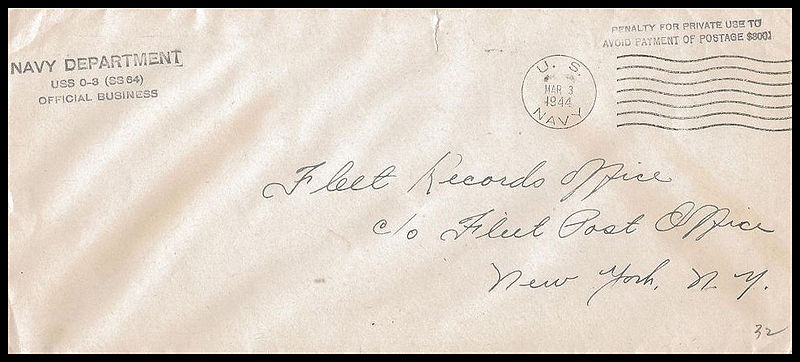 NAVY DEPARTMENT
USS O-3 (SS64)
OFFICIAL BUSINESS
U. S.
MAR 3
1944
NAVY
PENALTY FOR PRIVATE USE TO
AVOID PAYMENT OF POSTAGE $300!
Fleet Records Office
c/o Fleet Post Office
New York, N. Y.
32